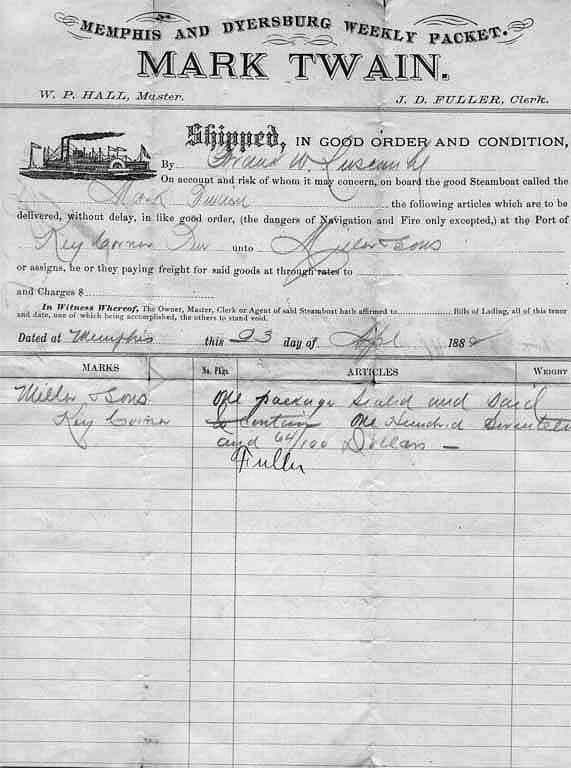 MEMPHIS AND DYERSBURG WEEKLY PACKET.
MARK TWAIN.
W. P. HALL, Master. J. D. FULLER, Clerk.
Shipped, IN GOOD ORDER AND CONDITION,
By W.
On account and risk of whom it may concern, on board the good Steamboat called the
Mark Twain the following articles which are to be
delivered, without delay, in like good order, (the dangers of Navigation and Fire only excepted,) at the Port of
Key Corner unto Miller & Sons
or assigns, he or they paying freight for said goods at through rates to
and Charges $
In Witness Whereof, The Owner, Master, Clerk or Agent of said Steamboat hath affirmed to Bills of Lading, all of this tenor
and date, one of which being accomplished, the others to stand void.
Dated at Memphis this 23 day of Apl 188
MARKS No. Pkgs. ARTICLES WEIGHT
Miller & Sons One package Seald and Said
Key Corner to contain One Hundrid Seventeen
and 64/100 Dollars —
Fuller